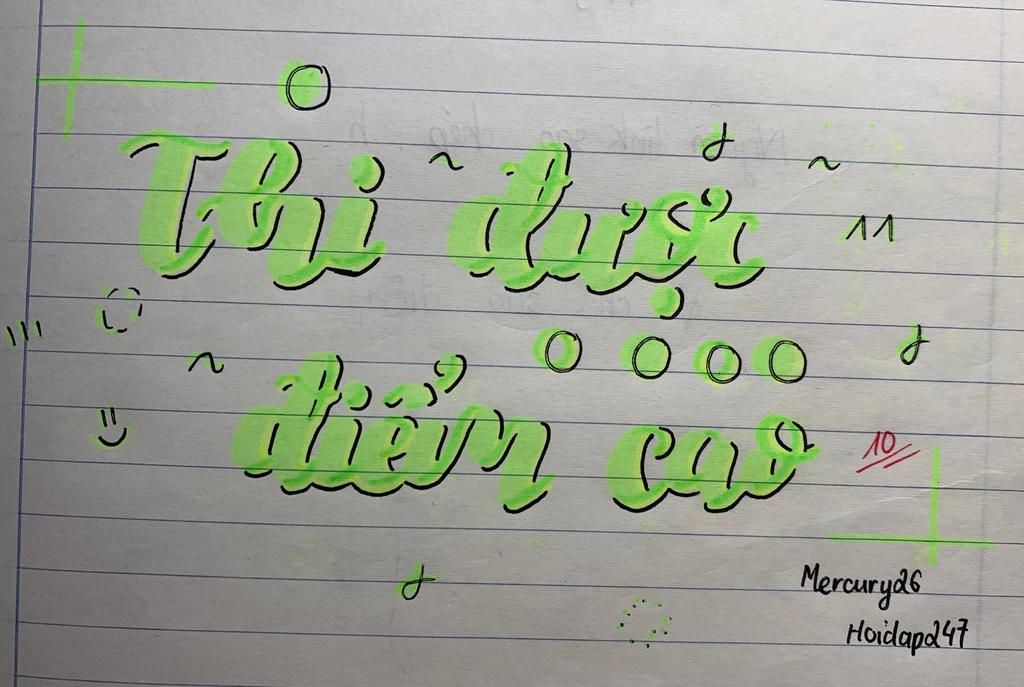 Thi được
điểm cao
10
Mercury26
Hoidap247